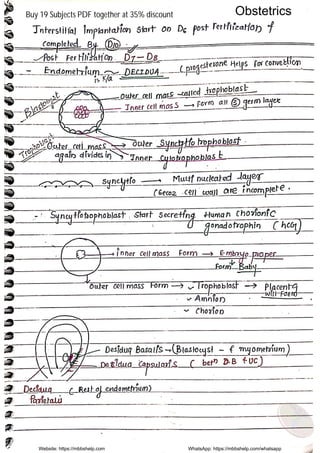 Buy 19 Subjects PDF together at 35% discount
Obstetrics
Interstitial Implantation start on D6 post Fertilization &
completed By D10.
Post Fertilization D7-D8
- Endometrium → DECIDUA (progesterone Helps for convertion
Blastocyst
outer cell mass - called trophoblast
Inner cell mass → form all ③ germ layer
Trophoblast
Outer cell mass → outer Syncytio trophoblast.
again divides in → Inner Cytotrophoblast
syncytio → Multi nucleated layer
(becoz cell wall are incomplete.
- Syncytiotrophoblast start Secreting Human Chorionic
gonadotrophin (hCG)
inner cell mass Form → Embryo proper
Form Baby
Outer cell mass Form → Trophoblast → Placenta
will Form
Amnion
Chorion
Desidua Basalis → (Blastocyst - & myometrium)
Desidua Capsularis (betn D.B & UC)
Decidua (Rest of endometrium)
Parietalis
Website: https://mbbshelp.com
WhatsApp: https://mbbshelp.com/whatsapp